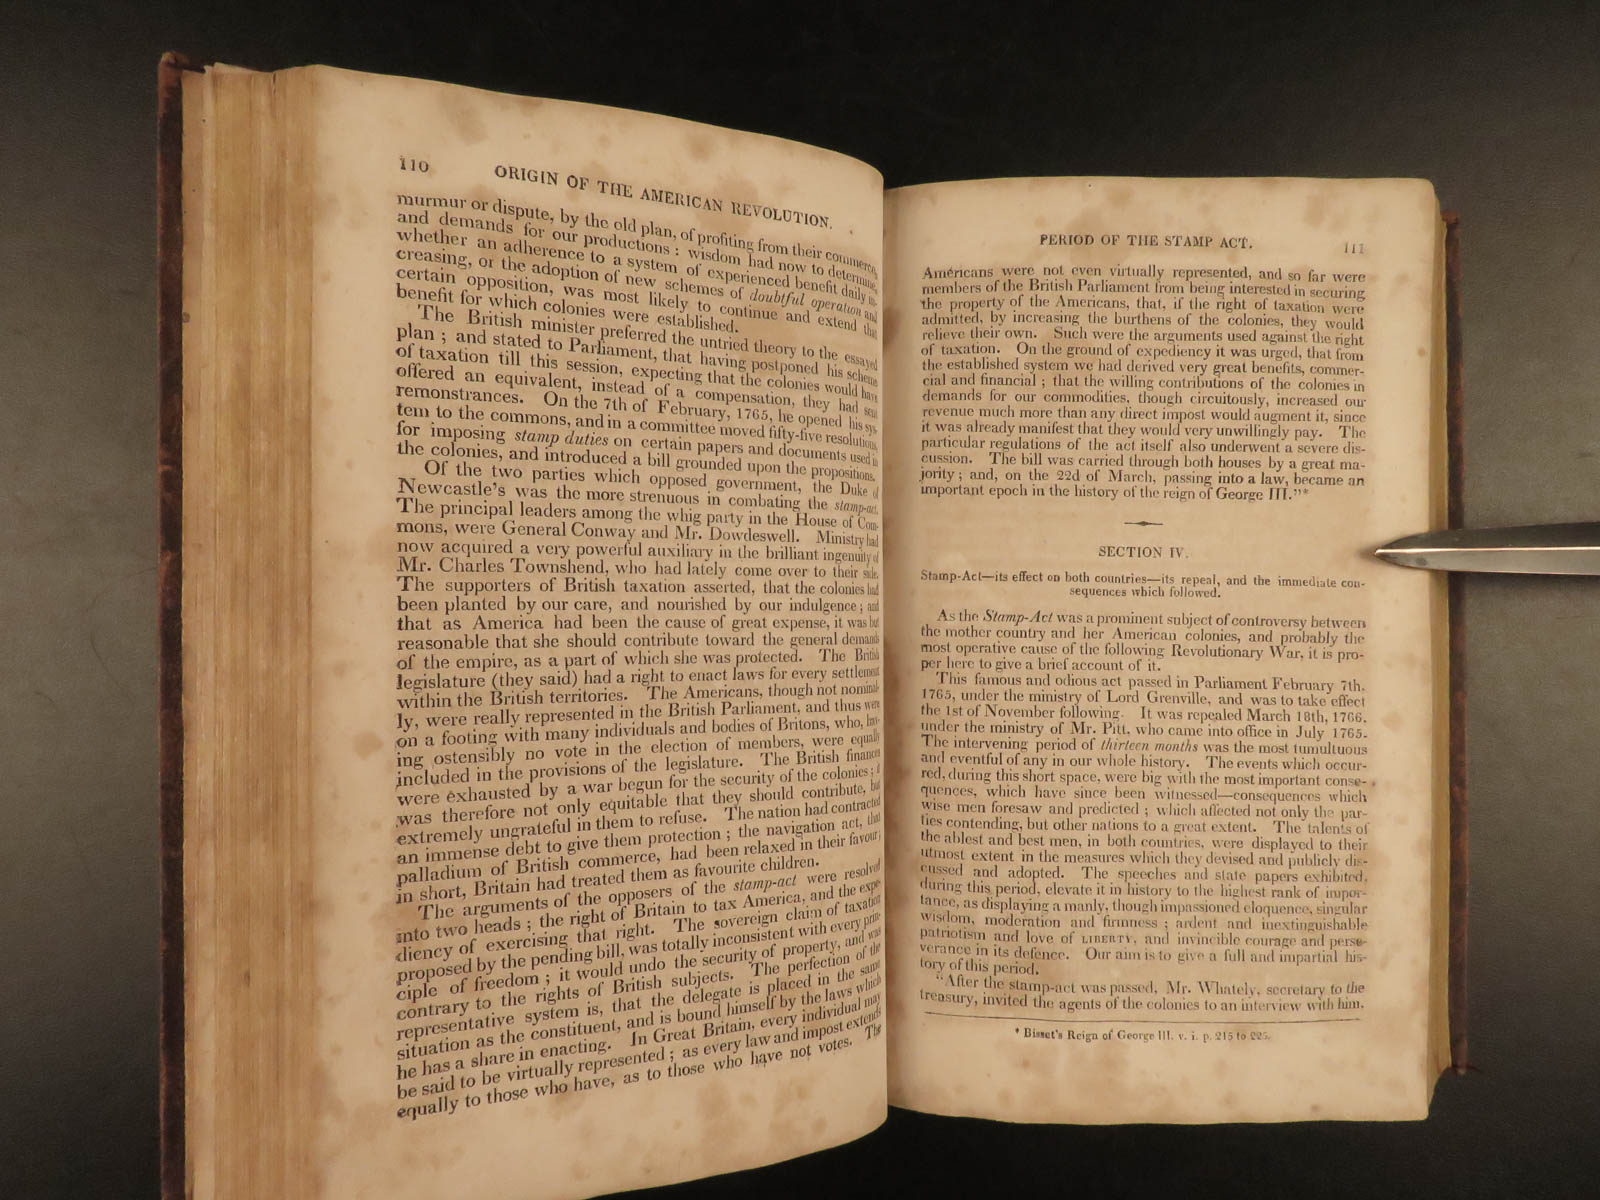 110
ORIGIN OF THE AMERICAN REVOLUTION.
murmur or dispute, by the old plan, of profiting from their commerce,
and demands for our productions : wisdom had now to determine,
whether an adherence to a system of experienced benefit daily in-
creasing, or the adoption of new schemes of doubtful operation and
certain opposition, was most likely to continue and extend that
benefit for which colonies were established.
The British minister preferred the untried theory to the essayed
plan ; and stated to Parliament, that having postponed his scheme
of taxation till this session, expecting that the colonies would have
offered an equivalent, instead of a compensation, they had sent
remonstrances. On the 7th of February, 1765, he opened his sys-
tem to the commons, and in a committee moved fifty-five resolutions,
for imposing stamp duties on certain papers and documents used in
the colonies, and introduced a bill grounded upon the propositions.
Of the two parties which opposed government, the Duke of
Newcastle's was the more strenuous in combating the stamp-act.
The principal leaders among the whig party in the House of Com-
mons, were General Conway and Mr. Dowdeswell. Ministry had
now acquired a very powerful auxiliary in the brilliant ingenuity of
Mr. Charles Townshend, who had lately come over to their side.
The supporters of British taxation asserted, that the colonies had
been planted by our care, and nourished by our indulgence ; and
that as America had been the cause of great expense, it was but
reasonable that she should contribute toward the general demands
of the empire, as a part of which she was protected. The British
legislature (they said) had a right to enact laws for every settlement
within the British territories. The Americans, though not nominal-
ly, were really represented in the British Parliament, and thus were
on a footing with many individuals and bodies of Britons, who, hav-
ing ostensibly no vote in the election of members, were equally
included in the provisions of the legislature. The British finances
were exhausted by a war begun for the security of the colonies ; it
was therefore not only equitable that they should contribute, but
extremely ungrateful in them to refuse. The nation had contracted
an immense debt to give them protection ; the navigation act, that
palladium of British commerce, had been relaxed in their favour ;
in short, Britain had treated them as favourite children.
The arguments of the opposers of the stamp-act were resolved
into two heads ; the right of Britain to tax America, and the expe-
diency of exercising that right. The sovereign claim of taxation
proposed by the pending bill, was totally inconsistent with every prin-
ciple of freedom ; it would undo the security of property, and was
contrary to the rights of British subjects. The perfection of the
representative system is, that the delegate is placed in the same
situation as the constituent, and is bound himself by the laws which
he has a share in enacting. In Great Britain, every individual may
be said to be virtually represented ; as every law and impost extends
equally to those who have, as to those who have not votes. The
PERIOD OF THE STAMP ACT.
111
Americans were not even virtually represented, and so far were
members of the British Parliament from being interested in securing
the property of the Americans, that, if the right of taxation were
admitted, by increasing the burthens of the colonies, they would
relieve their own. Such were the arguments used against the right
of taxation. On the ground of expediency it was urged, that from
the established system we had derived very great benefits, commer-
cial and financial ; that the willing contributions of the colonies in
demands for our commodities, though circuitously, increased our
revenue much more than any direct impost would augment it, since
it was already manifest that they would very unwillingly pay. The
particular regulations of the act itself also underwent a severe dis-
cussion. The bill was carried through both houses by a great ma-
jority ; and, on the 22d of March, passing into a law, became an
important epoch in the history of the reign of George III."*
SECTION IV.
Stamp-Act—its effect on both countries—its repeal, and the immediate con-
sequences which followed.
As the Stamp-Act was a prominent subject of controversy between
the mother country and her American colonies, and probably the
most operative cause of the following Revolutionary War, it is pro-
per here to give a brief account of it.
This famous and odious act passed in Parliament February 7th,
1765, under the ministry of Lord Grenville, and was to take effect
the 1st of November following. It was repealed March 18th, 1766,
under the ministry of Mr. Pitt, who came into office in July 1765.
The intervening period of thirteen months was the most tumultuous
and eventful of any in our whole history. The events which occur-
red, during this short space, were big with the most important conse-
quences, which have since been witnessed—consequences which
wise men foresaw and predicted ; which affected not only the par-
ties contending, but other nations to a great extent. The talents of
the ablest and best men, in both countries, were displayed to their
utmost extent in the measures which they devised and publicly dis-
cussed and adopted. The speeches and state papers exhibited,
during this period, elevate it in history to the highest rank of impor-
tance, as displaying a manly, though impassioned eloquence, singular
wisdom, moderation and firmness ; ardent and inextinguishable
patriotism and love of LIBERTY, and invincible courage and perse-
verance in its defence. Our aim is to give a full and impartial his-
tory of this period.
"After the stamp-act was passed, Mr. Whately, secretary to the
treasury, invited the agents of the colonies to an interview with him,
* Bisset's Reign of George III. v. i. p. 215 to 225.